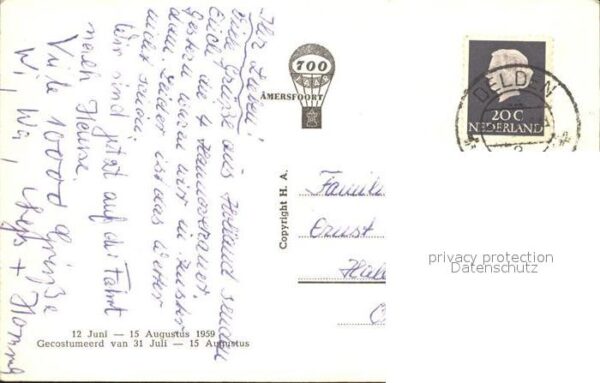 Ihr Lieben!
Viele Grüße aus Holland senden
Euch die 4 Hannoveraner.
Gestern waren wir in Amster
dam. Leider ist das Wetter
nicht schön.
Wir sind jetzt auf der Fahrt
nach Hause.
Viele 10000 Grüße
Wi, Wa,
700
AMERSFOORT
DELDEN
20 C
NEDERLAND
Copyright H. A.
Familie
Ernst
privacy protection
Datenschutz
12 Juni — 15 Augustus 1959
Gecostumeerd van 31 Juli — 15 Augustus